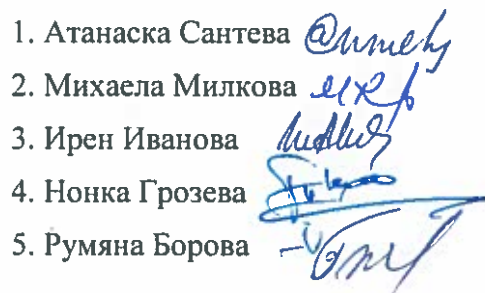 1. Атанаска Сантева
2. Михаела Милкова
3. Ирен Иванова
4. Нонка Грозева
5. Румяна Борова